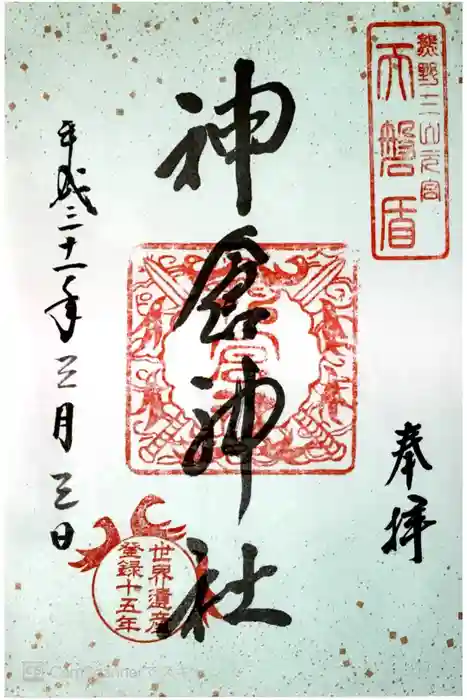 熊野三山元宮
天磐盾
奉拝
神倉神社
平成三十一年三月三日
世界遺産
登録十五年
CS CamScanner